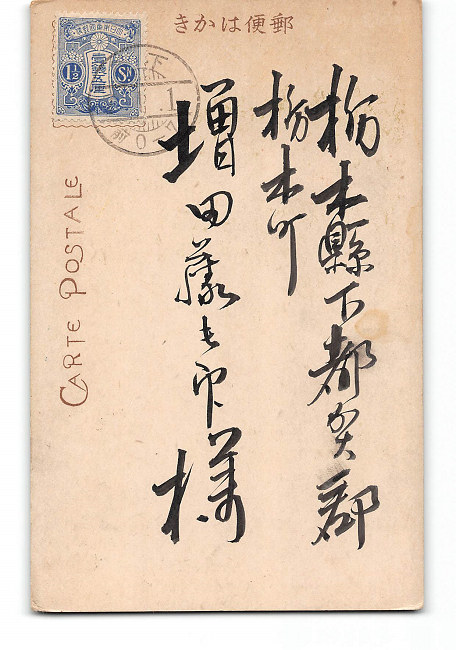 郵便はかき
栃木縣下都賀郡
栃木町
増田藤吉郎様
CARTE POSTALE
壹錢五厘
1½ Sn